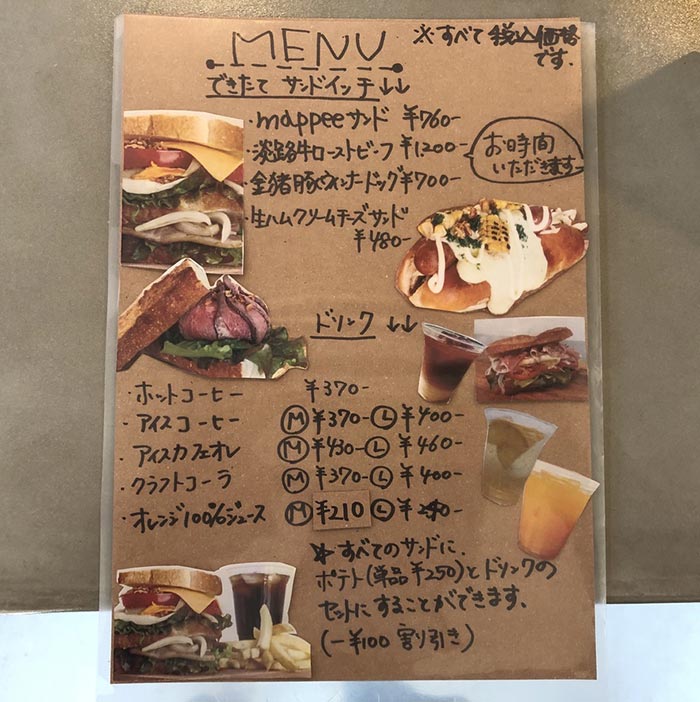 MENU
※すべて税込価格
です.
できたて サンドイッチ↓↓
・mappeeサンド ¥760-
・淡路牛ローストビーフ ¥1,200-
・金猪豚ウィンナードッグ¥700-
お時間
いただきます
・生ハムクリームチーズサンド
¥480-
ドリンク ↓↓
・ホットコーヒー ¥370-
・アイスコーヒー Ⓜ¥370-Ⓛ¥400-
・アイスカフェオレ Ⓜ¥430-Ⓛ¥460-
・クラフトコーラ Ⓜ¥370-Ⓛ¥400-
・オレンジ100%ジュース Ⓜ¥210 Ⓛ¥
※すべてのサンドに、
ポテト(単品¥250)とドリンクの
セットにすることができます。
(-¥100 割り引き)